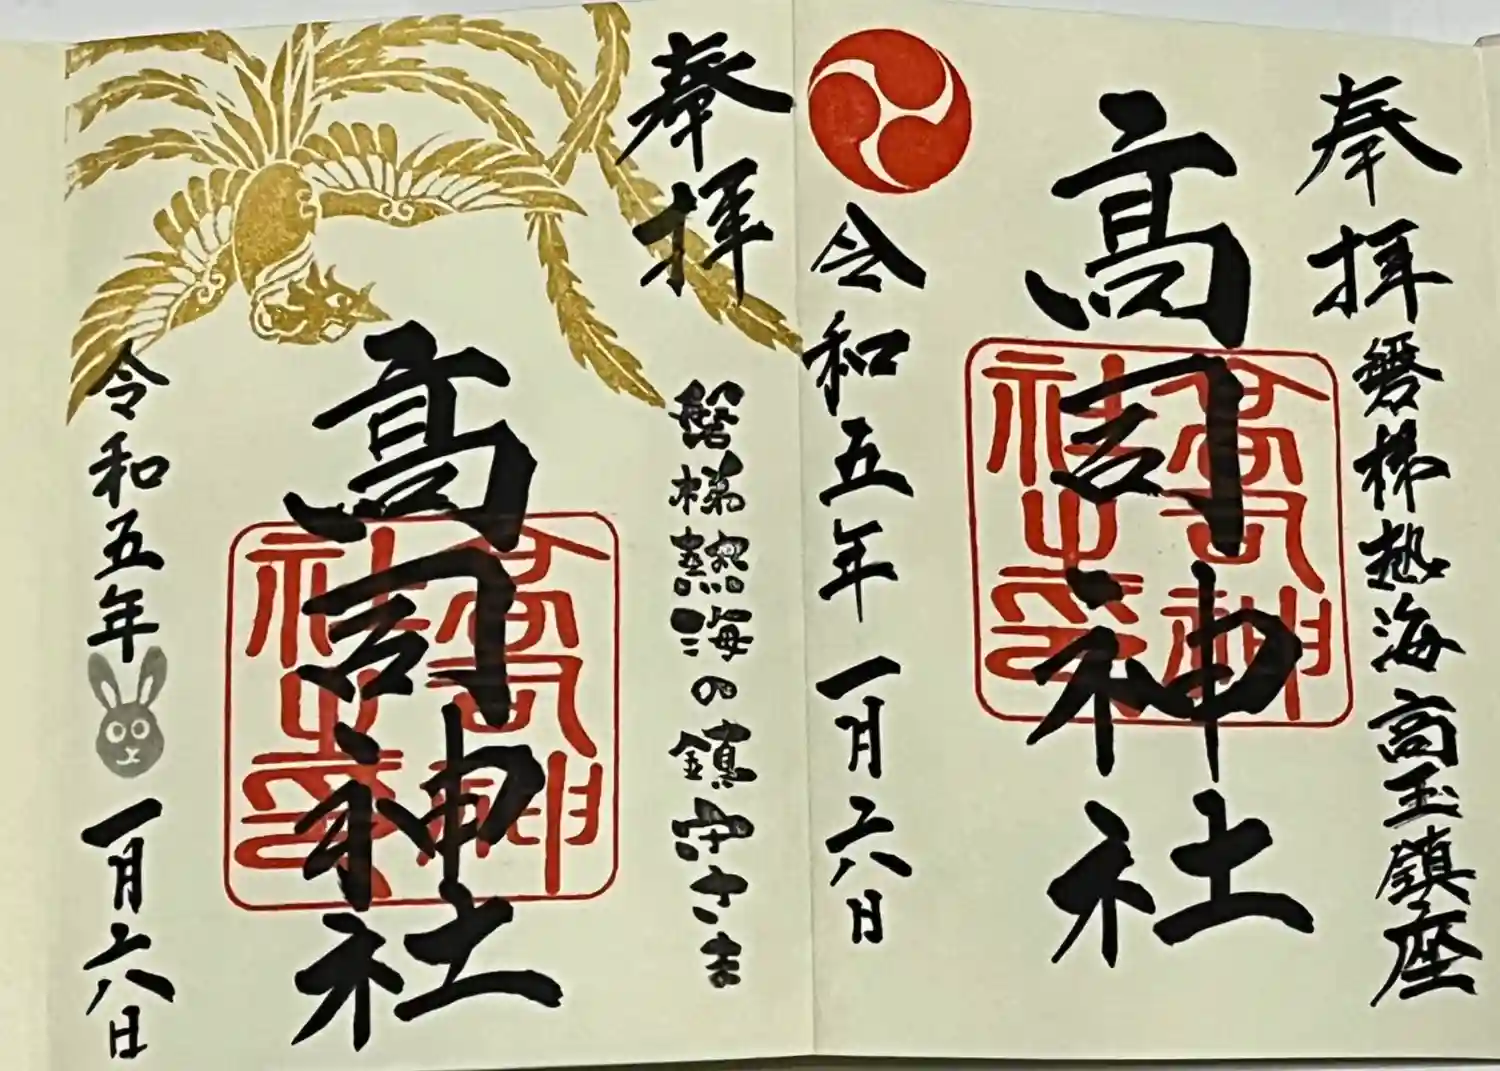 奉拝
磐梯熱海高玉鎮座
高司神社
高司神社之印
令和五年一月六日
奉拝
磐梯熱海の鎮守さま
高司神社
高司神社之印
令和五年一月六日